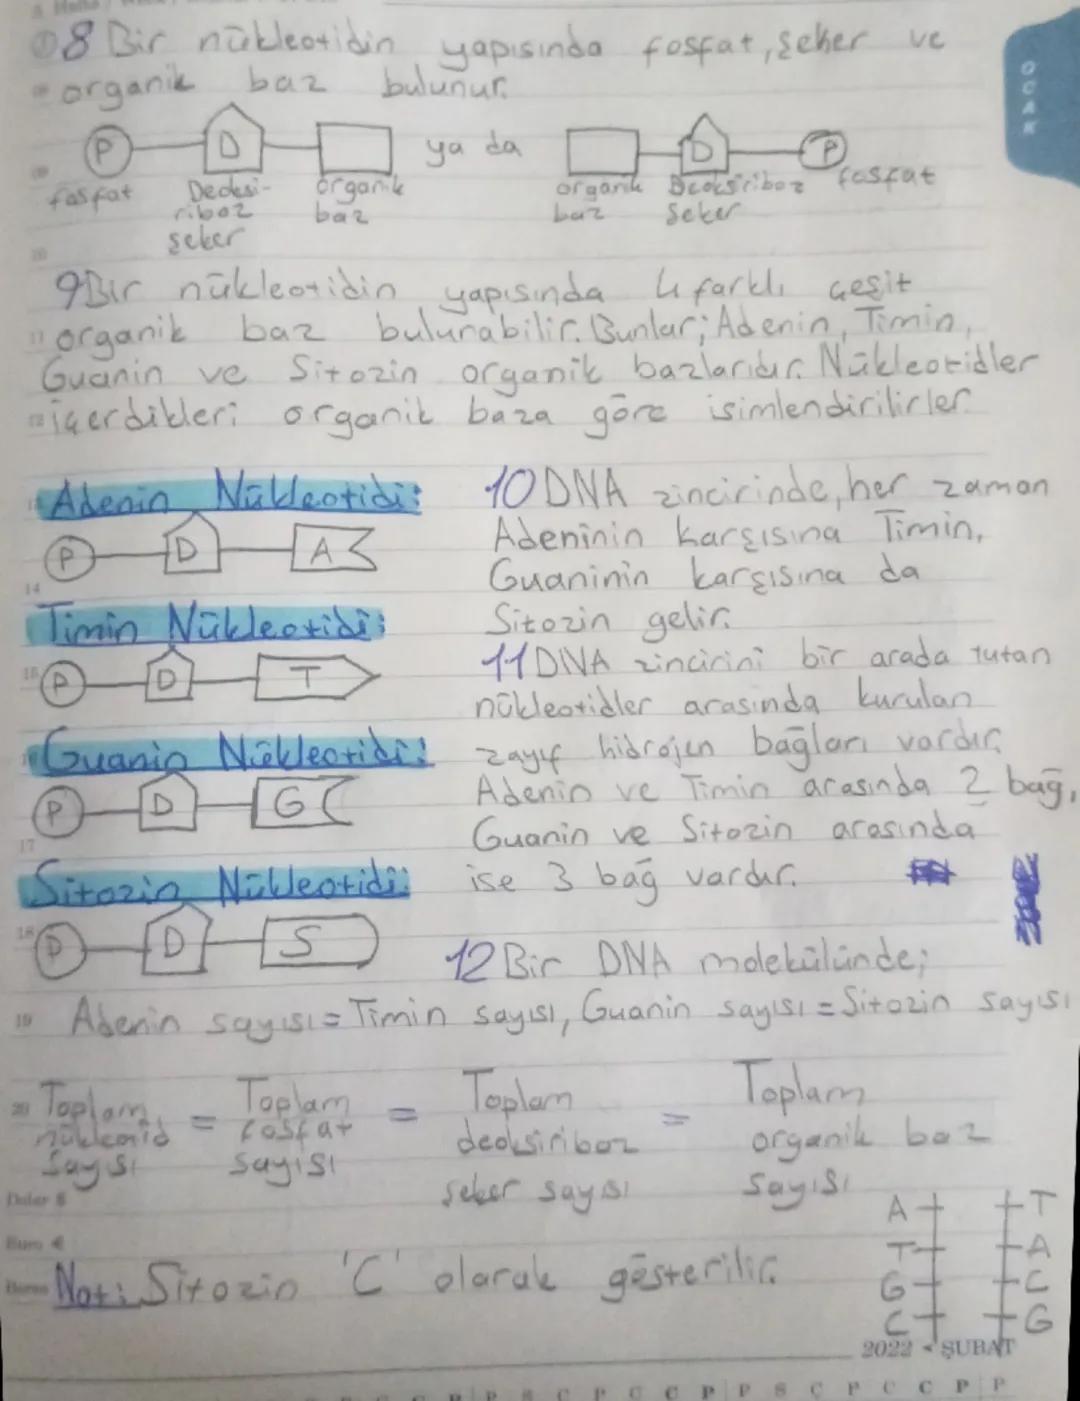 8 Bir nükleotidin yapısında fosfat, şeker ve
organik baz bulunur.
P D ya da D P
fosfat Deoksi-
riboz
şeker organik
baz organik
baz Deoksiriboz
şeker fosfat
9 Bir nükleotidin yapısında 4 farklı çeşit
organik baz bulunabilir. Bunlar; Adenin, Timin,
Guanin ve Sitozin organik bazlarıdır. Nükleotidler
içerdikleri organik baza göre isimlendirilirler.
Adenin Nükleotidi:
P D A
Timin Nükleotidi:
P D T
Guanin Nükleotidi:
P D G
Sitozin Nükleotidi:
P D S
10 DNA zincirinde, her zaman
Adeninin karşısına Timin,
Guaninin karşısına da
Sitozin gelir.
11 DNA zincirini bir arada tutan
nükleotidler arasında kurulan
zayıf hidrojen bağları vardır.
Adenin ve Timin arasında 2 bağ,
Guanin ve Sitozin arasında
ise 3 bağ vardır.
12 Bir DNA molekülünde;
Adenin sayısı = Timin sayısı, Guanin sayısı = Sitozin sayısı
Toplam
nükleotid
sayısı = Toplam
fosfat
sayısı = Toplam
deoksiriboz
şeker sayısı = Toplam
organik baz
sayısı
Not: Sitozin 'C' olarak gösterilir.
A T
T A
G C
C G
OCAK
14
15
17
18
19
20
Dolar $
Euro €
Borsa
2022 - ŞUBAT